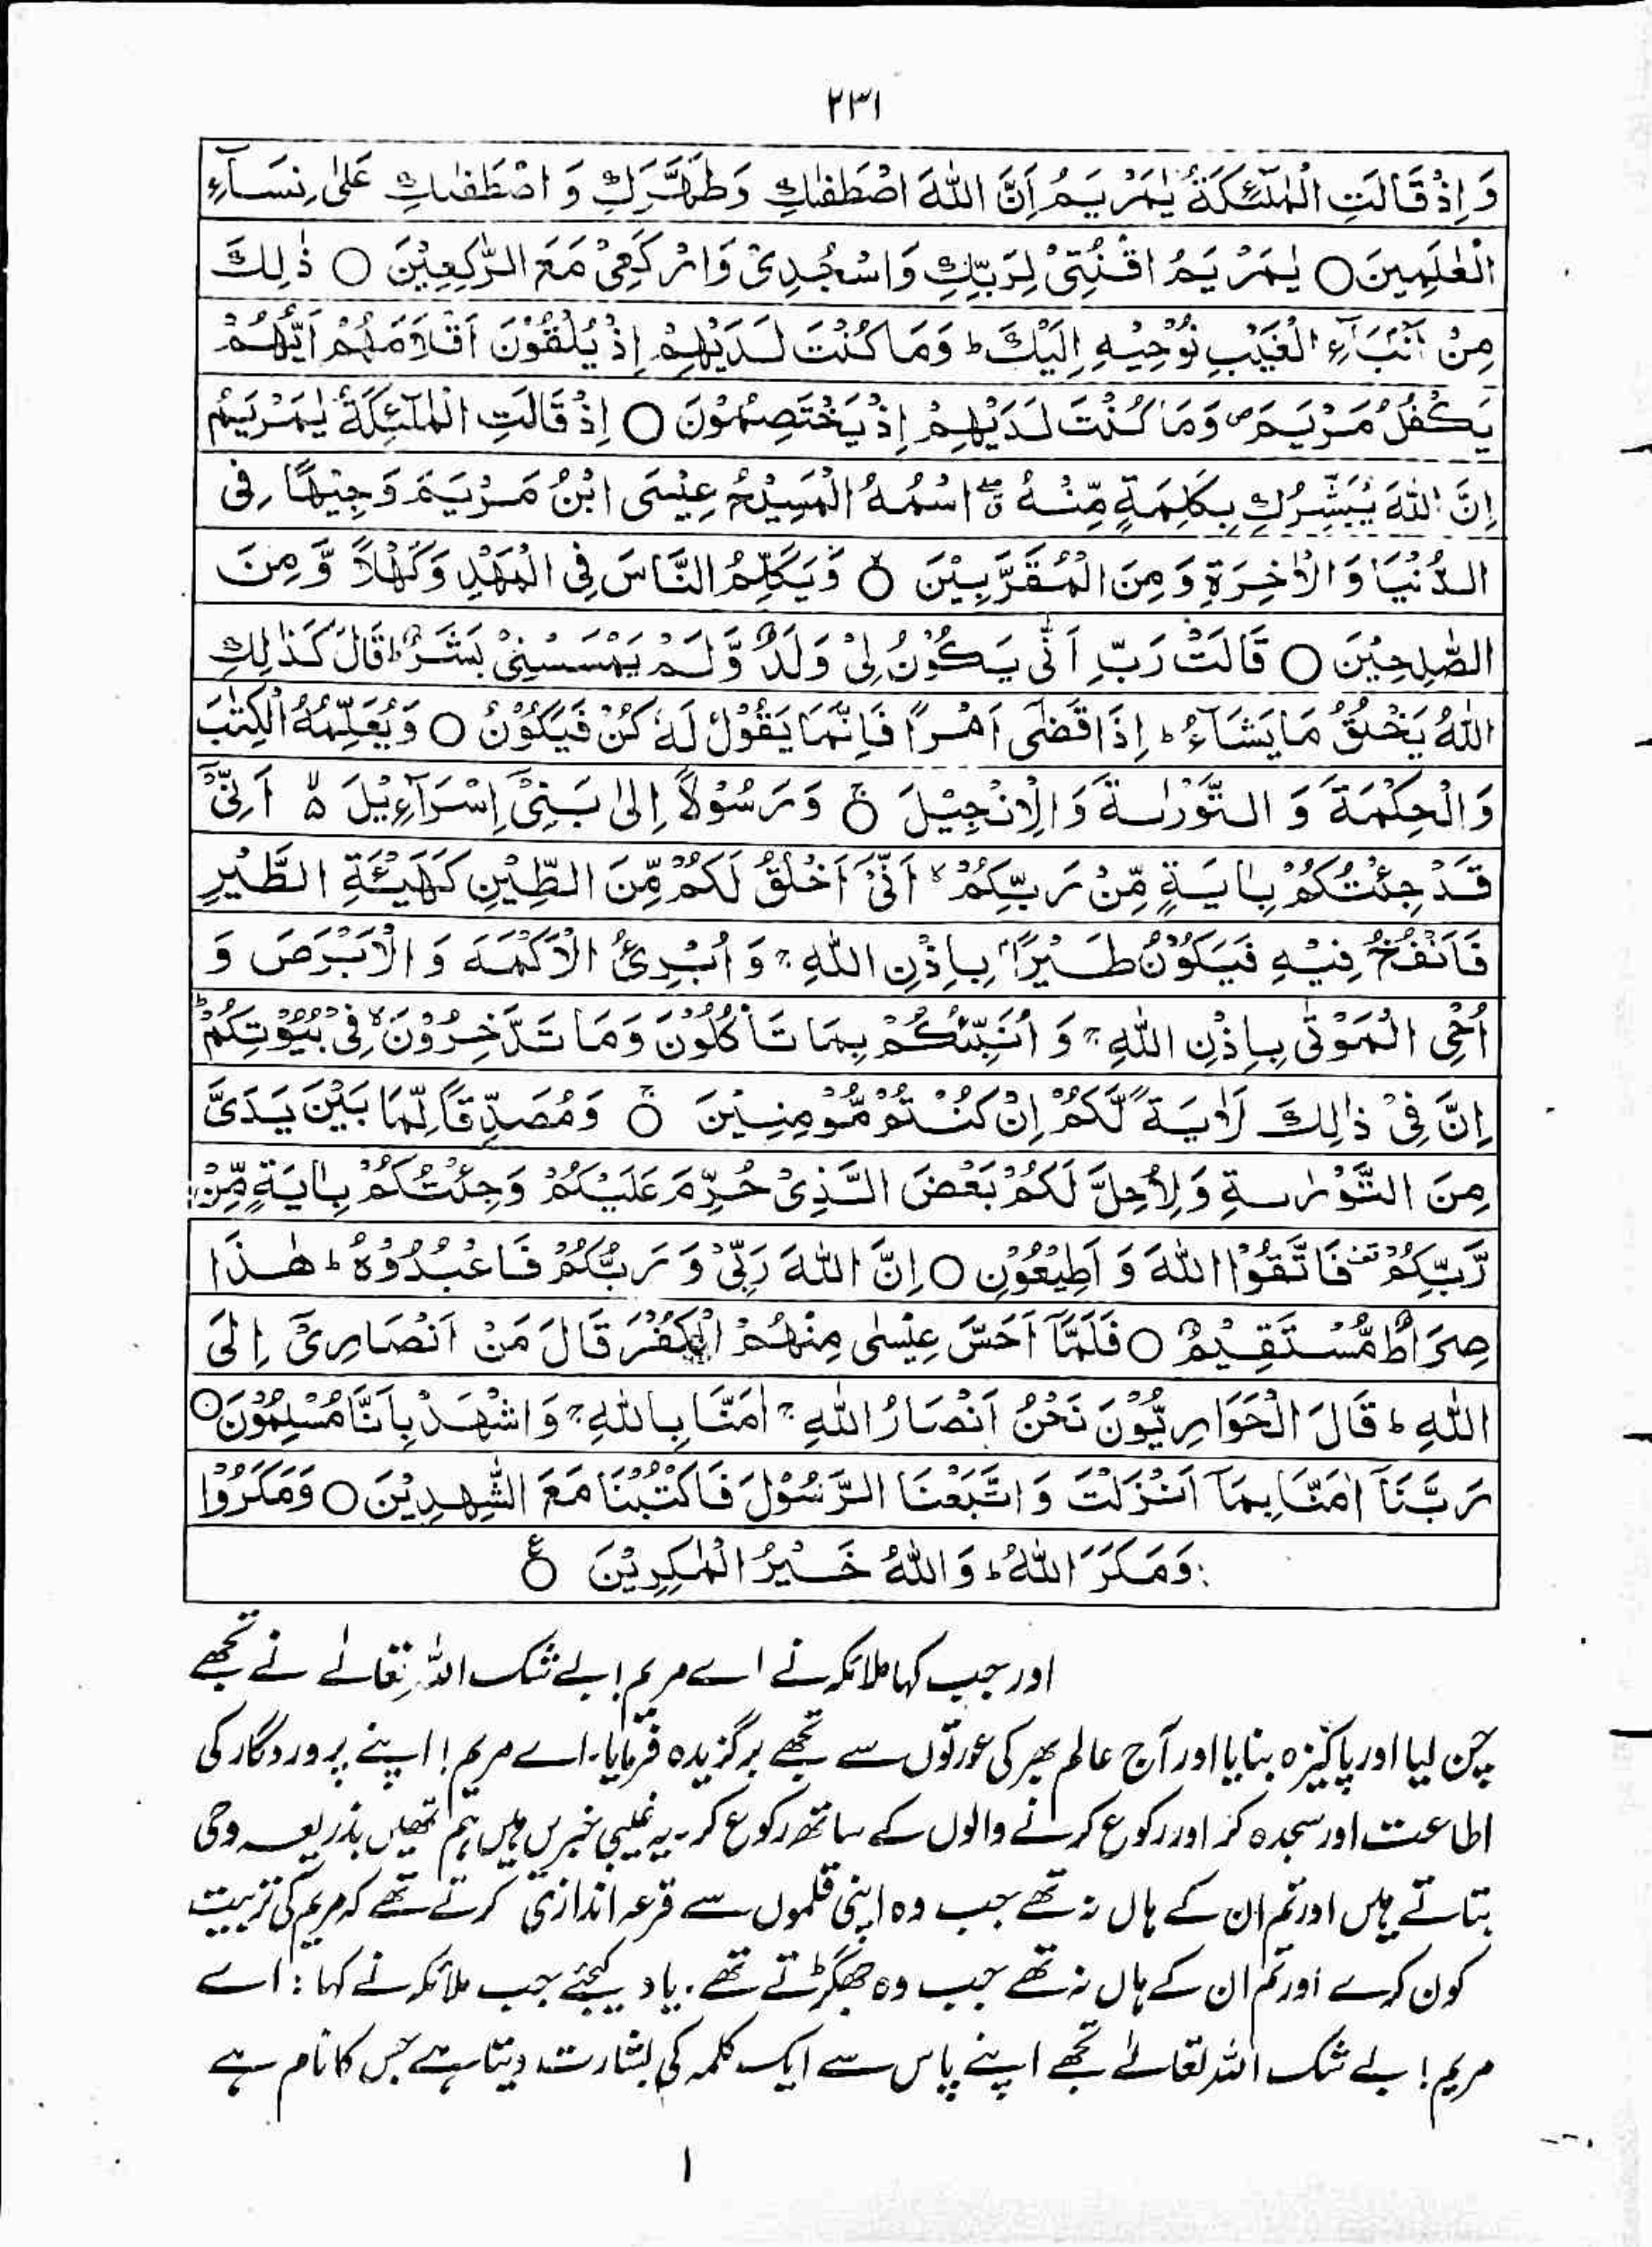 ۲۳۱
وَ اِذْ قَالَتِ الْمَلٰٓئِكَةُ يٰمَرْيَمُ اِنَّ اللّٰهَ اصْطَفٰىكِ وَطَهَّرَكِ وَ اصْطَفٰىكِ عَلٰى نِسَآءِ
الْعٰلَمِيْنَ ○ يٰمَرْيَمُ اقْنُتِىْ لِرَبِّكِ وَاسْجُدِىْ وَارْكَعِىْ مَعَ الرّٰكِعِيْنَ ○ ذٰلِكَ
مِنْ اَنْۢبَآءِ الْغَيْبِ نُوْحِيْهِ اِلَيْكَ ؕ وَمَا كُنْتَ لَدَيْهِمْ اِذْ يُلْقُوْنَ اَقْلَامَهُمْ اَيُّهُمْ
يَكْفُلُ مَرْيَمَ ۪ وَمَا كُنْتَ لَدَيْهِمْ اِذْ يَخْتَصِمُوْنَ ○ اِذْ قَالَتِ الْمَلٰٓئِكَةُ يٰمَرْيَمُ
اِنَّ اللّٰهَ يُبَشِّرُكِ بِكَلِمَةٍ مِّنْهُ ۖ اسْمُهُ الْمَسِيْحُ عِيْسَى ابْنُ مَرْيَمَ وَجِيْهًا فِى
الدُّنْيَا وَالْاٰخِرَةِ وَمِنَ الْمُقَرَّبِيْنَ ○ وَيُكَلِّمُ النَّاسَ فِى الْمَهْدِ وَكَهْلًا وَّ مِنَ
الصّٰلِحِيْنَ ○ قَالَتْ رَبِّ اَنّٰى يَكُوْنُ لِىْ وَلَدٌ وَّلَمْ يَمْسَسْنِىْ بَشَرٌ ؕ قَالَ كَذٰلِكِ
اللّٰهُ يَخْلُقُ مَا يَشَآءُ ؕ اِذَا قَضٰٓى اَمْرًا فَاِنَّمَا يَقُوْلُ لَهٗ كُنْ فَيَكُوْنُ ○ وَيُعَلِّمُهُ الْكِتٰبَ
وَالْحِكْمَةَ وَ التَّوْرٰىةَ وَالْاِنْجِيْلَ ○ وَرَسُوْلًا اِلٰى بَنِىْٓ اِسْرَآءِيْلَ ۙ اَنِّىْ
قَدْ جِئْتُكُمْ بِاٰيَةٍ مِّنْ رَّبِّكُمْ ۙ اَنِّىْٓ اَخْلُقُ لَكُمْ مِّنَ الطِّيْنِ كَهَيْئَةِ الطَّيْرِ
فَاَنْفُخُ فِيْهِ فَيَكُوْنُ طَيْرًا ۢ بِاِذْنِ اللّٰهِ ۚ وَ اُبْرِئُ الْاَكْمَهَ وَ الْاَبْرَصَ وَ
اُحْىِ الْمَوْتٰى بِاِذْنِ اللّٰهِ ۚ وَ اُنَبِّئُكُمْ بِمَا تَاْكُلُوْنَ وَمَا تَدَّخِرُوْنَ ۙ فِىْ بُيُوْتِكُمْ ؕ
اِنَّ فِىْ ذٰلِكَ لَاٰيَةً لَّكُمْ اِنْ كُنْتُمْ مُّؤْمِنِيْنَ ○ وَمُصَدِّقًا لِّمَا بَيْنَ يَدَىَّ
مِنَ التَّوْرٰىةِ وَلِاُحِلَّ لَكُمْ بَعْضَ الَّذِىْ حُرِّمَ عَلَيْكُمْ وَجِئْتُكُمْ بِاٰيَةٍ مِّنْ
رَّبِّكُمْ فَاتَّقُوا اللّٰهَ وَ اَطِيْعُوْنِ ○ اِنَّ اللّٰهَ رَبِّىْ وَ رَبُّكُمْ فَاعْبُدُوْهُ ؕ هٰذَا
صِرَاطٌ مُّسْتَقِيْمٌ ○ فَلَمَّآ اَحَسَّ عِيْسٰى مِنْهُمُ الْكُفْرَ قَالَ مَنْ اَنْصَارِىْٓ اِلَى
اللّٰهِ ؕ قَالَ الْحَوَارِيُّوْنَ نَحْنُ اَنْصَارُ اللّٰهِ ۚ اٰمَنَّا بِاللّٰهِ ۚ وَاشْهَدْ بِاَنَّا مُسْلِمُوْنَ ○
رَبَّنَآ اٰمَنَّا بِمَآ اَنْزَلْتَ وَاتَّبَعْنَا الرَّسُوْلَ فَاكْتُبْنَا مَعَ الشّٰهِدِيْنَ ○ وَمَكَرُوْا
وَمَكَرَ اللّٰهُ ؕ وَاللّٰهُ خَيْرُ الْمٰكِرِيْنَ ○ ع
اور جب کہا ملائکہ نے اے مریم! بے شک اللہ تعالےٰ نے تجھے
چن لیا اور پاکیزہ بنایا اور آج عالم بھر کی عورتوں سے تجھے برگزیدہ فرمایا۔ اے مریم! اپنے پروردگار کی
اطاعت اور سجدہ کر اور رکوع کرنے والوں کے ساتھ رکوع کر۔ یہ غیبی خبریں ہیں ہم تمھیں بذریعہ وحی
بتاتے ہیں اور تم ان کے ہاں نہ تھے جب وہ اپنی قلموں سے قرعہ اندازی کرتے تھے کہ مریم کی تربیت
کون کرے اور تم ان کے ہاں نہ تھے جب وہ جھگڑتے تھے۔ یاد کیجئے جب ملائکہ نے کہا : اے
مریم! بے شک اللہ تعالےٰ تجھے اپنے پاس سے ایک کلمہ کی بشارت دیتا ہے جس کا نام ہے
۱